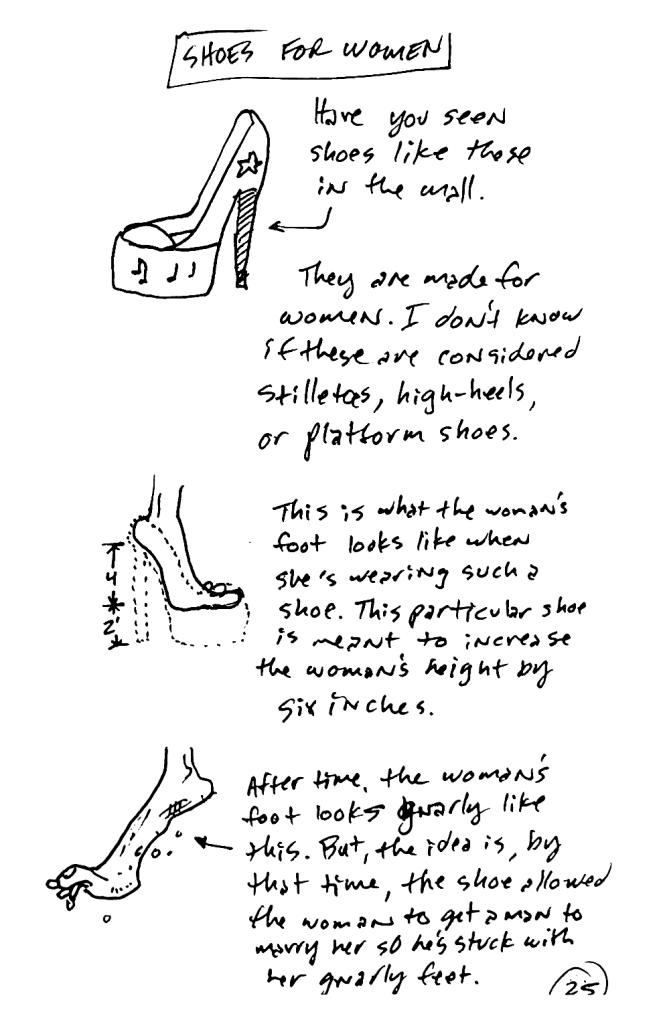 SHOES FOR WOMEN
Have you seen
shoes like these
in the mall.
They are made for
women. I don't know
if these are considered
stilletos, high-heels,
or platform shoes.
This is what the woman's
foot looks like when
she's wearing such a
shoe. This particular shoe
is meant to increase
the woman's height by
six inches.
4
2"
After time, the woman's
foot looks gnarly like
this. But, the idea is, by
that time, the shoe allowed
the woman to get a man to
marry her so he's stuck with
her gnarly feet.
25